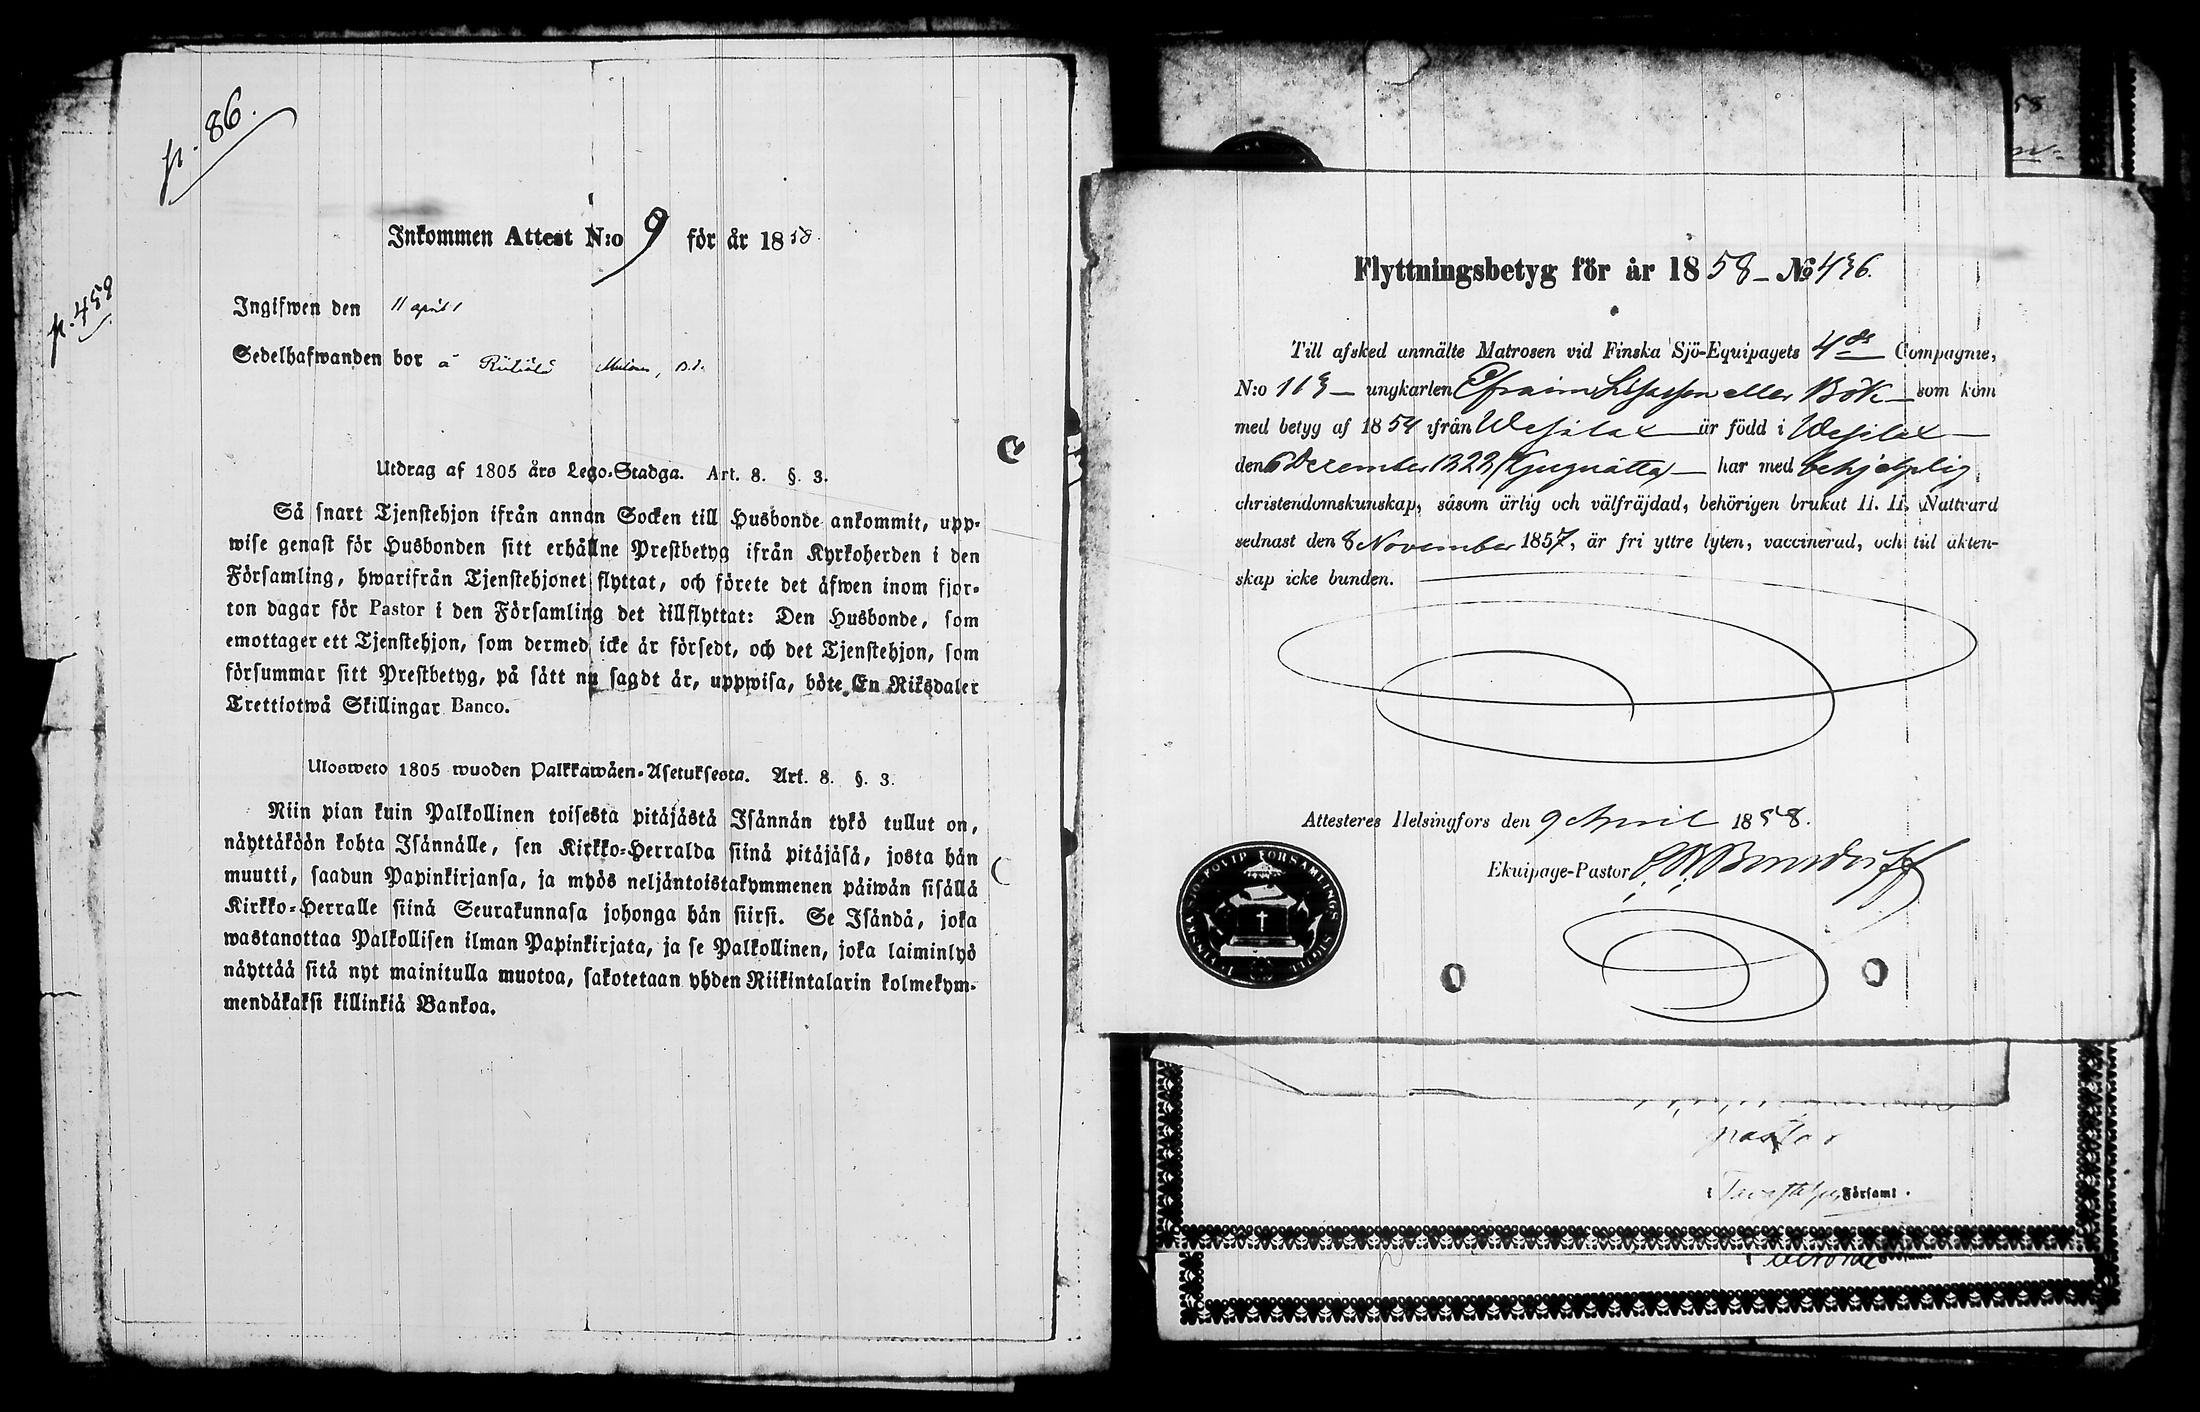 p. 86.
p. 458
Inkommen Attest N:o 9 för år 1858.
Ingifwen den 11 april
Sedelhafwanden bor å
Utdrag af 1805 års Lego-Stadga. Art. 8. §. 3.
Så snart Tjenstehjon ifrån annan Socken till Husbonde ankommit, upp-
wise genast för Husbonden sitt erhållne Prestbetyg ifrån Kyrkoherden i den
Församling, hwarifrån Tjenstehjonet flyttat, och förete det äfwen inom fjor-
ton dagar för Pastor i den Församling det tillflyttat: Den Husbonde, som
emottager ett Tjenstehjon, som dermed icke är försedt, och det Tjenstehjon, som
försummar sitt Prestbetyg, på sätt nu sagdt är, uppwisa, böte En Riksdaler
Trettiotwå Skillingar Banco.
Ulosweto 1805 wuoden Palkkawäen-Asetuksesta. Art. 8. §. 3.
Niin pian kuin Palkollinen toisesta pitäjästä Isännän tykö tullut on,
näyttäköön kohta Isännälle, sen Kirkko-Herralda siinä pitäjäsä, josta hän
muutti, saadun Papinkirjansa, ja myös neljäntoistakymmenen päiwän sisällä
Kirkko-Herralle siinä Seurakunnasa johonga hän siirsi. Se Isändä, joka
wastanottaa Palkollisen ilman Papinkirjata, ja se Palkollinen, joka laiminlyö
näyttää sitä nyt mainitulla muotoa, sakotetaan yhden Riikintalarin kolmekym-
mendäkaksi killinkiä Bankoa.
58
Flyttningsbetyg för år 1858 - No 436.
Till afsked anmälte Matrosen vid Finska Sjö-Equipagets 4de Compagnie,
N:o 113 - ungkarlen Efraim eller Bök - som kom
med betyg af 1854 ifrån Wesilax är född i Wesilax
den 6 December 1822 har med behjelplig
christendomskunskap, såsom ärlig och välfräjdad, behörigen brukat H. H. Nattvard
sednast den 8 November 1857, är fri yttre lyten, vaccinerad, och till äkten-
skap icke bunden.
Attesteres Helsingfors den 9 April 1858.
Ekuipage-Pastor
FINSKA SJÖ-EQVIP. FÖRSAMLINGS SIGILL
pastor
i Församl.